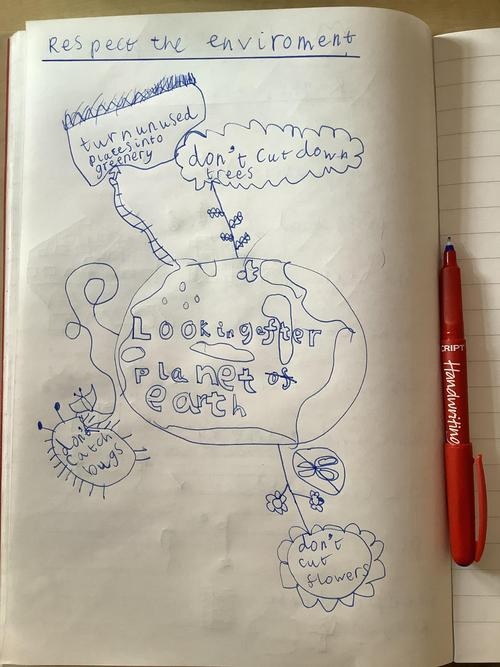 Respect the enviroment
turn unused
places into
greenery
don't cut down
trees
Looking after
planet of
earth
don't
catch
bugs
don't
cut
flowers
SCRIPT
Handwriting